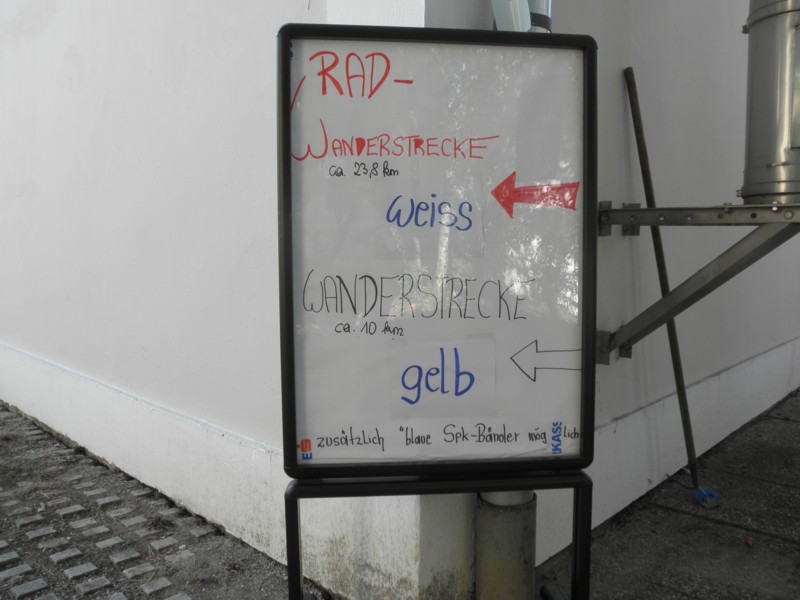 RAD-
WANDERSTRECKE
ca. 23,8 km
weiss
WANDERSTRECKE
ca. 10 km
gelb
zusätzlich "blaue Spk-Bänder möglich